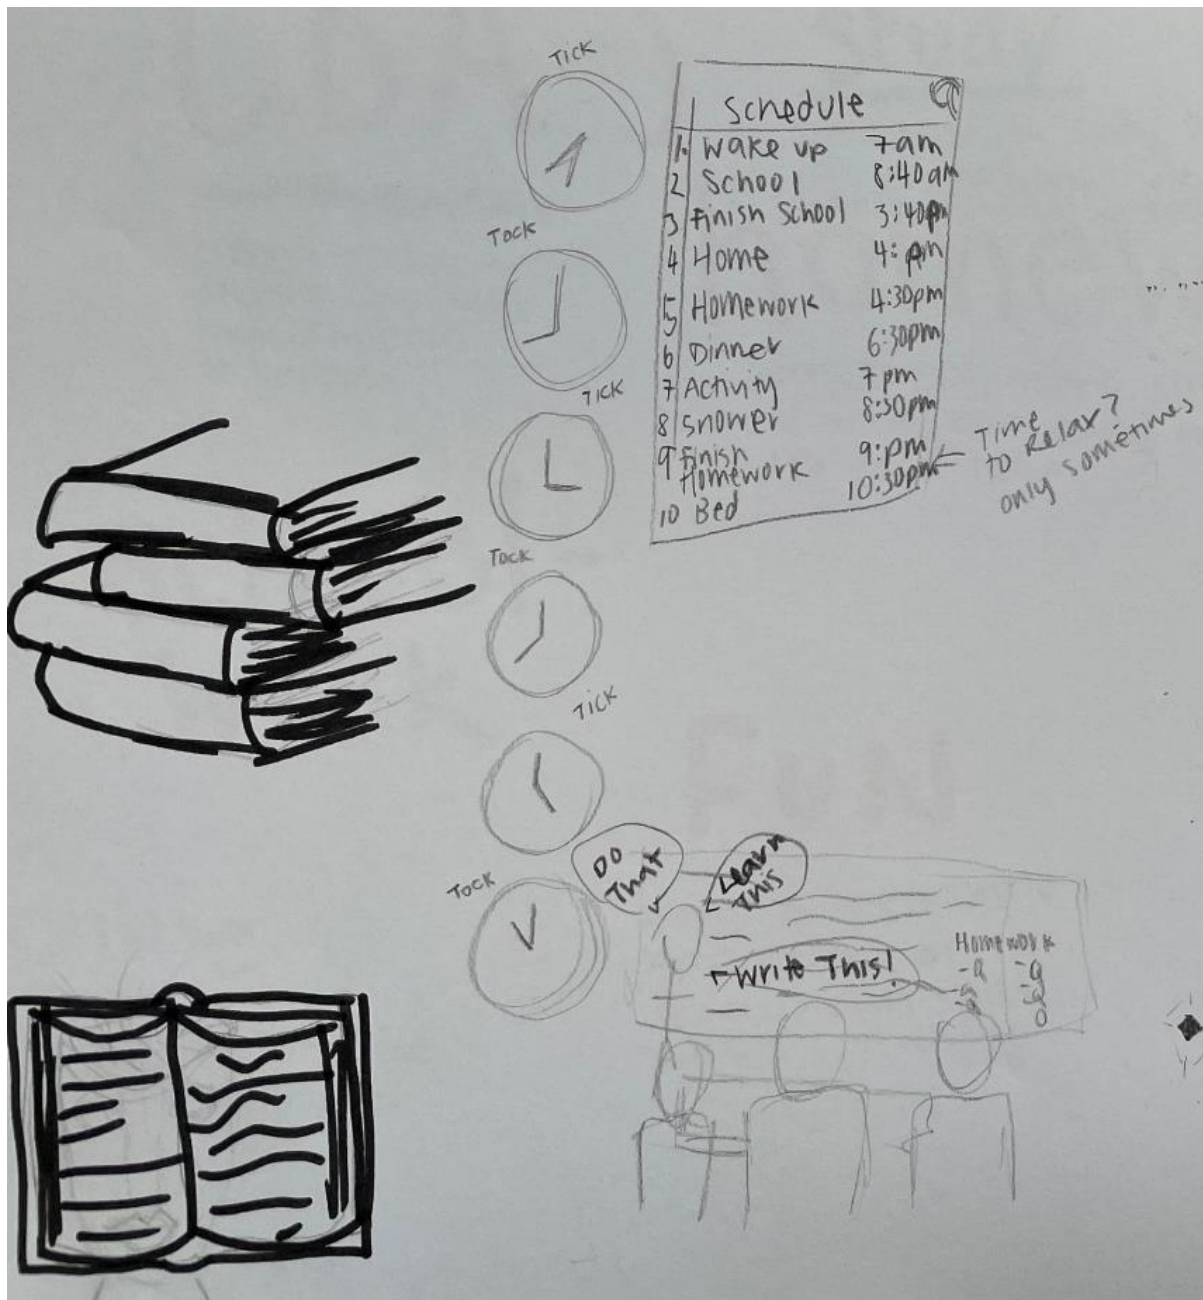 TICK
Tock
TICK
Tock
TICK
Tock
Schedule
1. Wake up 7am
2 School 8:40am
3 Finish School 3:40pm
4 Home 4: pm
5 Homework 4:30pm
6 Dinner 6:30pm
7 Activity 7pm
8 Shower 8:30pm
9 Finish 9:pm
Homework
10 Bed 10:30pm
Time
to Relax?
only sometimes
Do
That
Learn
This
Write This!
Homework